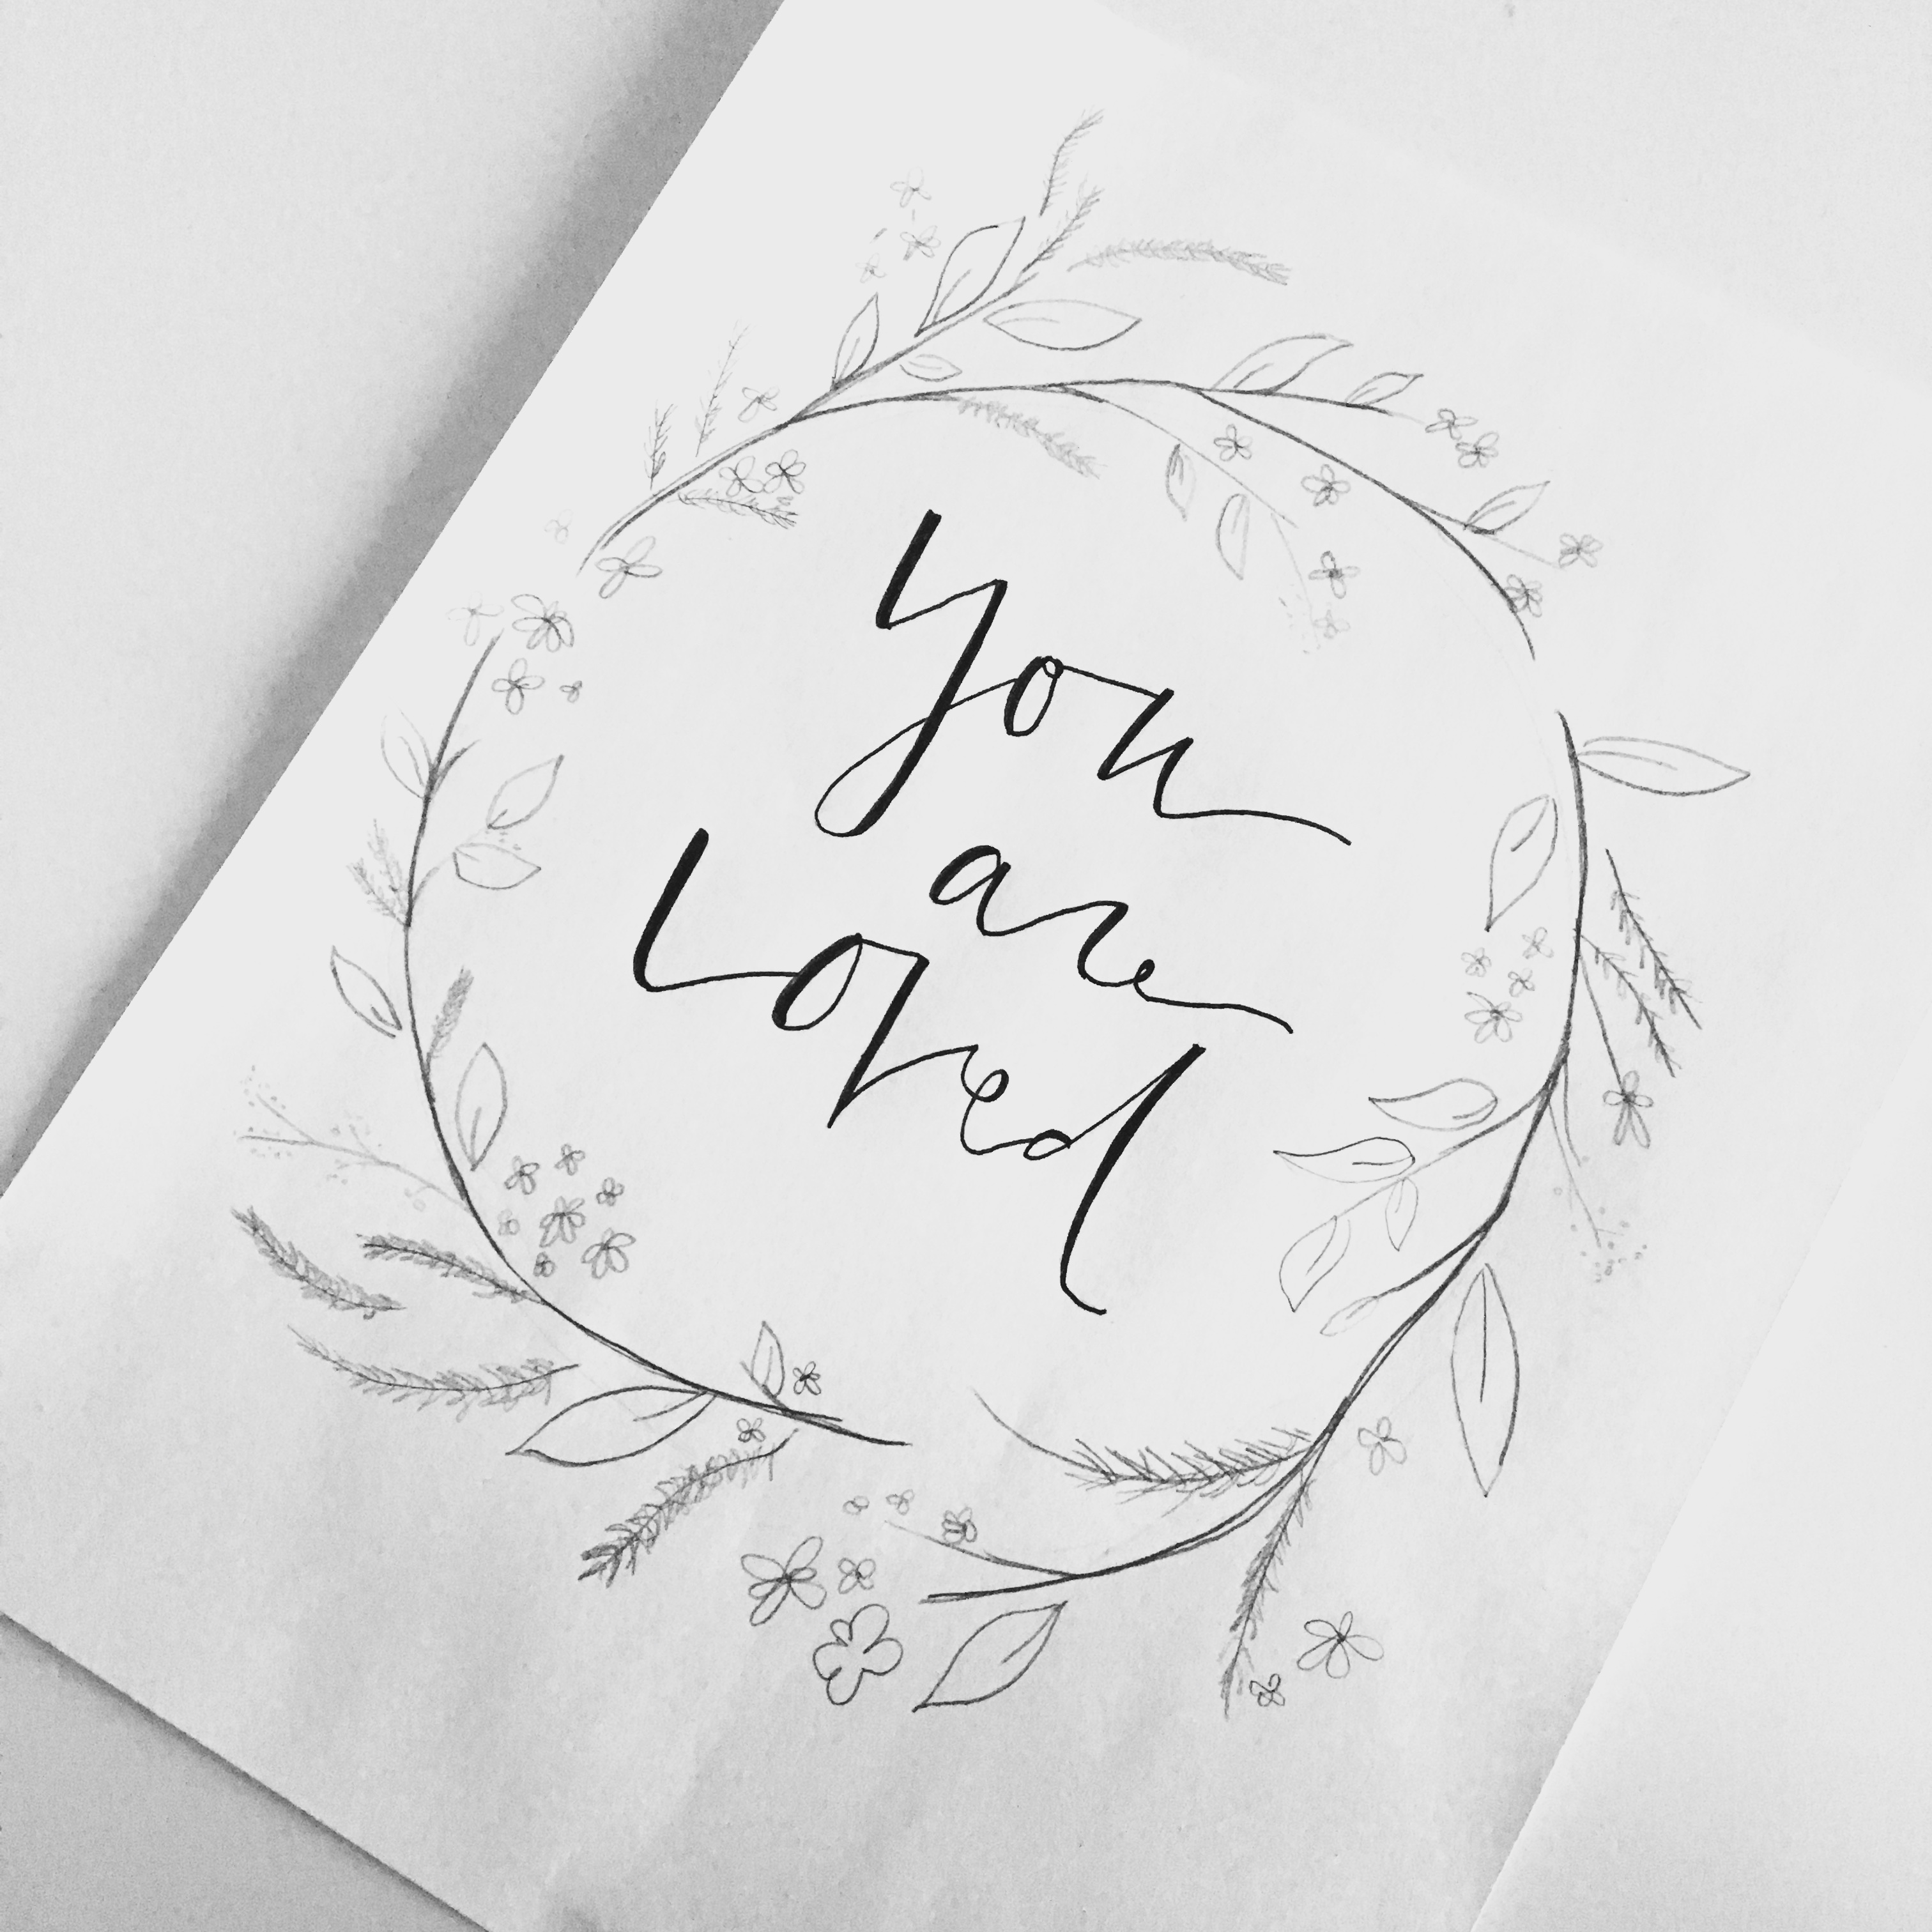 you
are
Loved